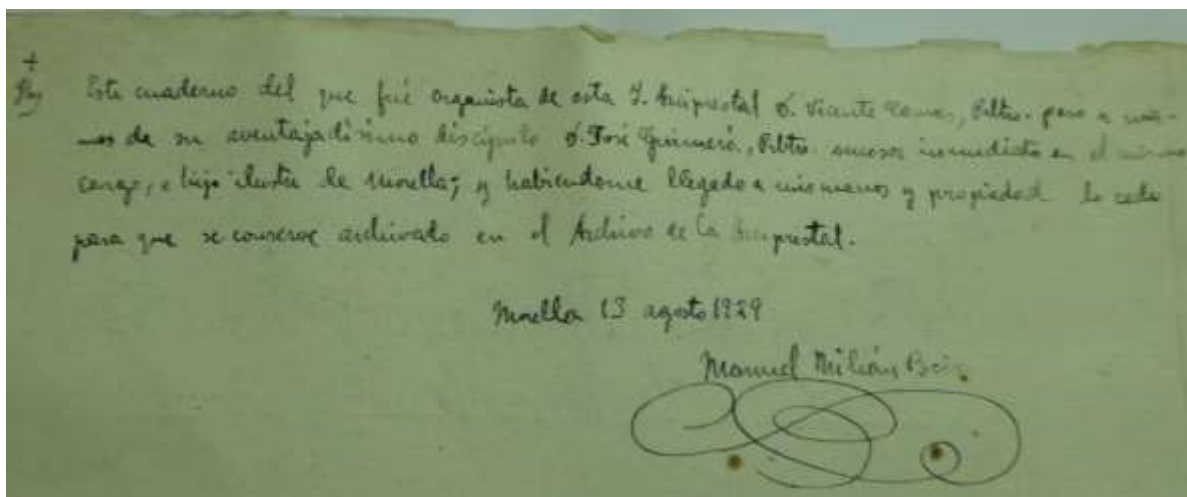 +
Este cuaderno del que fué organista de esta I. Arciprestal D. Vicente Comes, Pbtro. paso a ma-
nos de su aventajadisimo discipulo D. José Guimerá, Pbtro. sucesor inmediato en el mismo
cargo, e hijo ilustre de Morella; y habiendome llegado a mis manos y propiedad lo cedo
para que se conserve archivado en el Archivo de la Arciprestal.
Morella 13 agosto 1929
Manuel Milián Boix